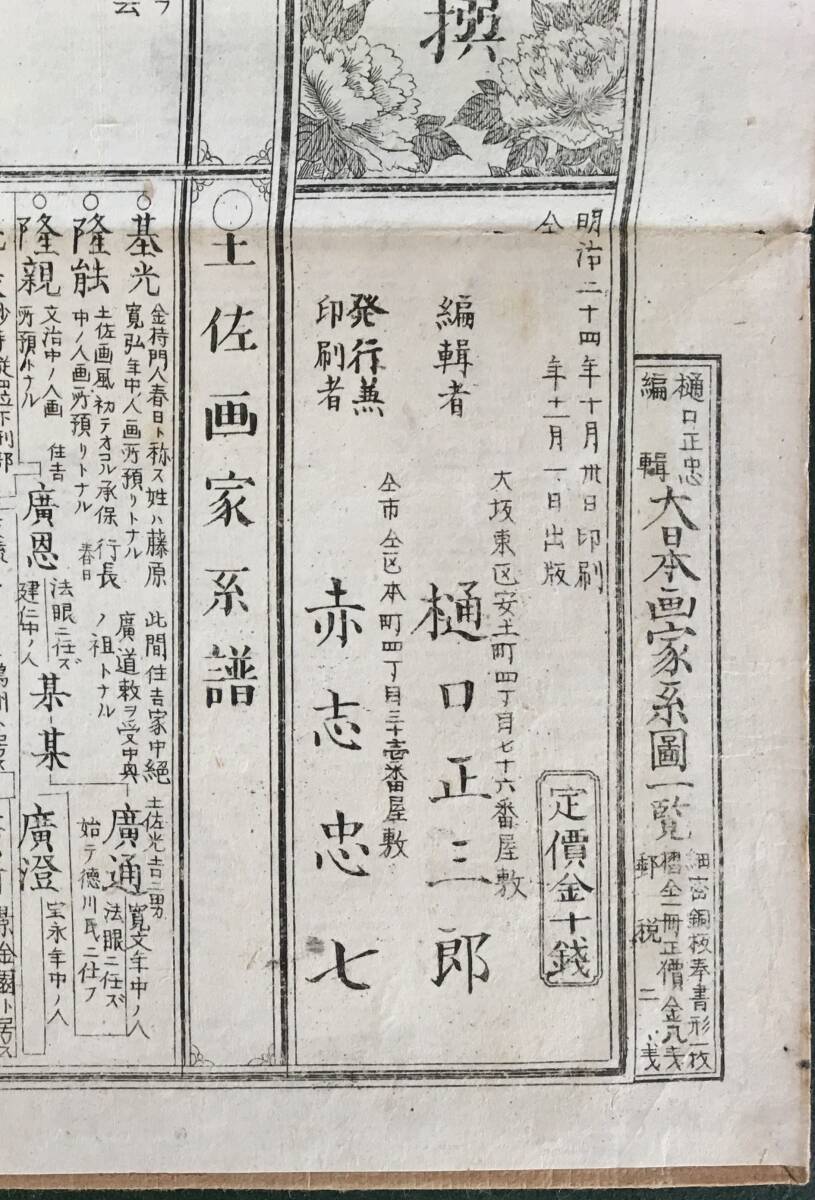 樋口正忠
編輯
大日本画家系圖一覧
細密銅板奉書形一枚
摺仝一冊正價金八戋
郵税二戋
撰
明治二十四年十月卅日印刷
仝年十一月一日出版
定價金十錢
大坂東区安土町四丁目七十六番屋敷
編輯者
樋口正三郎
仝市仝区本町四丁目三十壱番屋敷
発行兼
印刷者
赤志忠七
土佐画家系譜
基光
金持門人春日ト称ス姓ハ藤原
寛弘年中ノ人画所預リトナル
隆能
土佐画風初テオコル承保
中ノ人画所預リトナル
行長
春日
ノ祖トナル
隆親
文治中ノ人画
所預トナル
住吉
廣恩
法眼ニ任ズ
建仁中ノ人
某
某
此間住吉家中絶
廣道敕ヲ受中興
廣通
土佐光吉二男
寛文年中ノ人
法眼ニ任ズ
始テ徳川氏ニ仕フ
廣澄
宝永年中ノ人